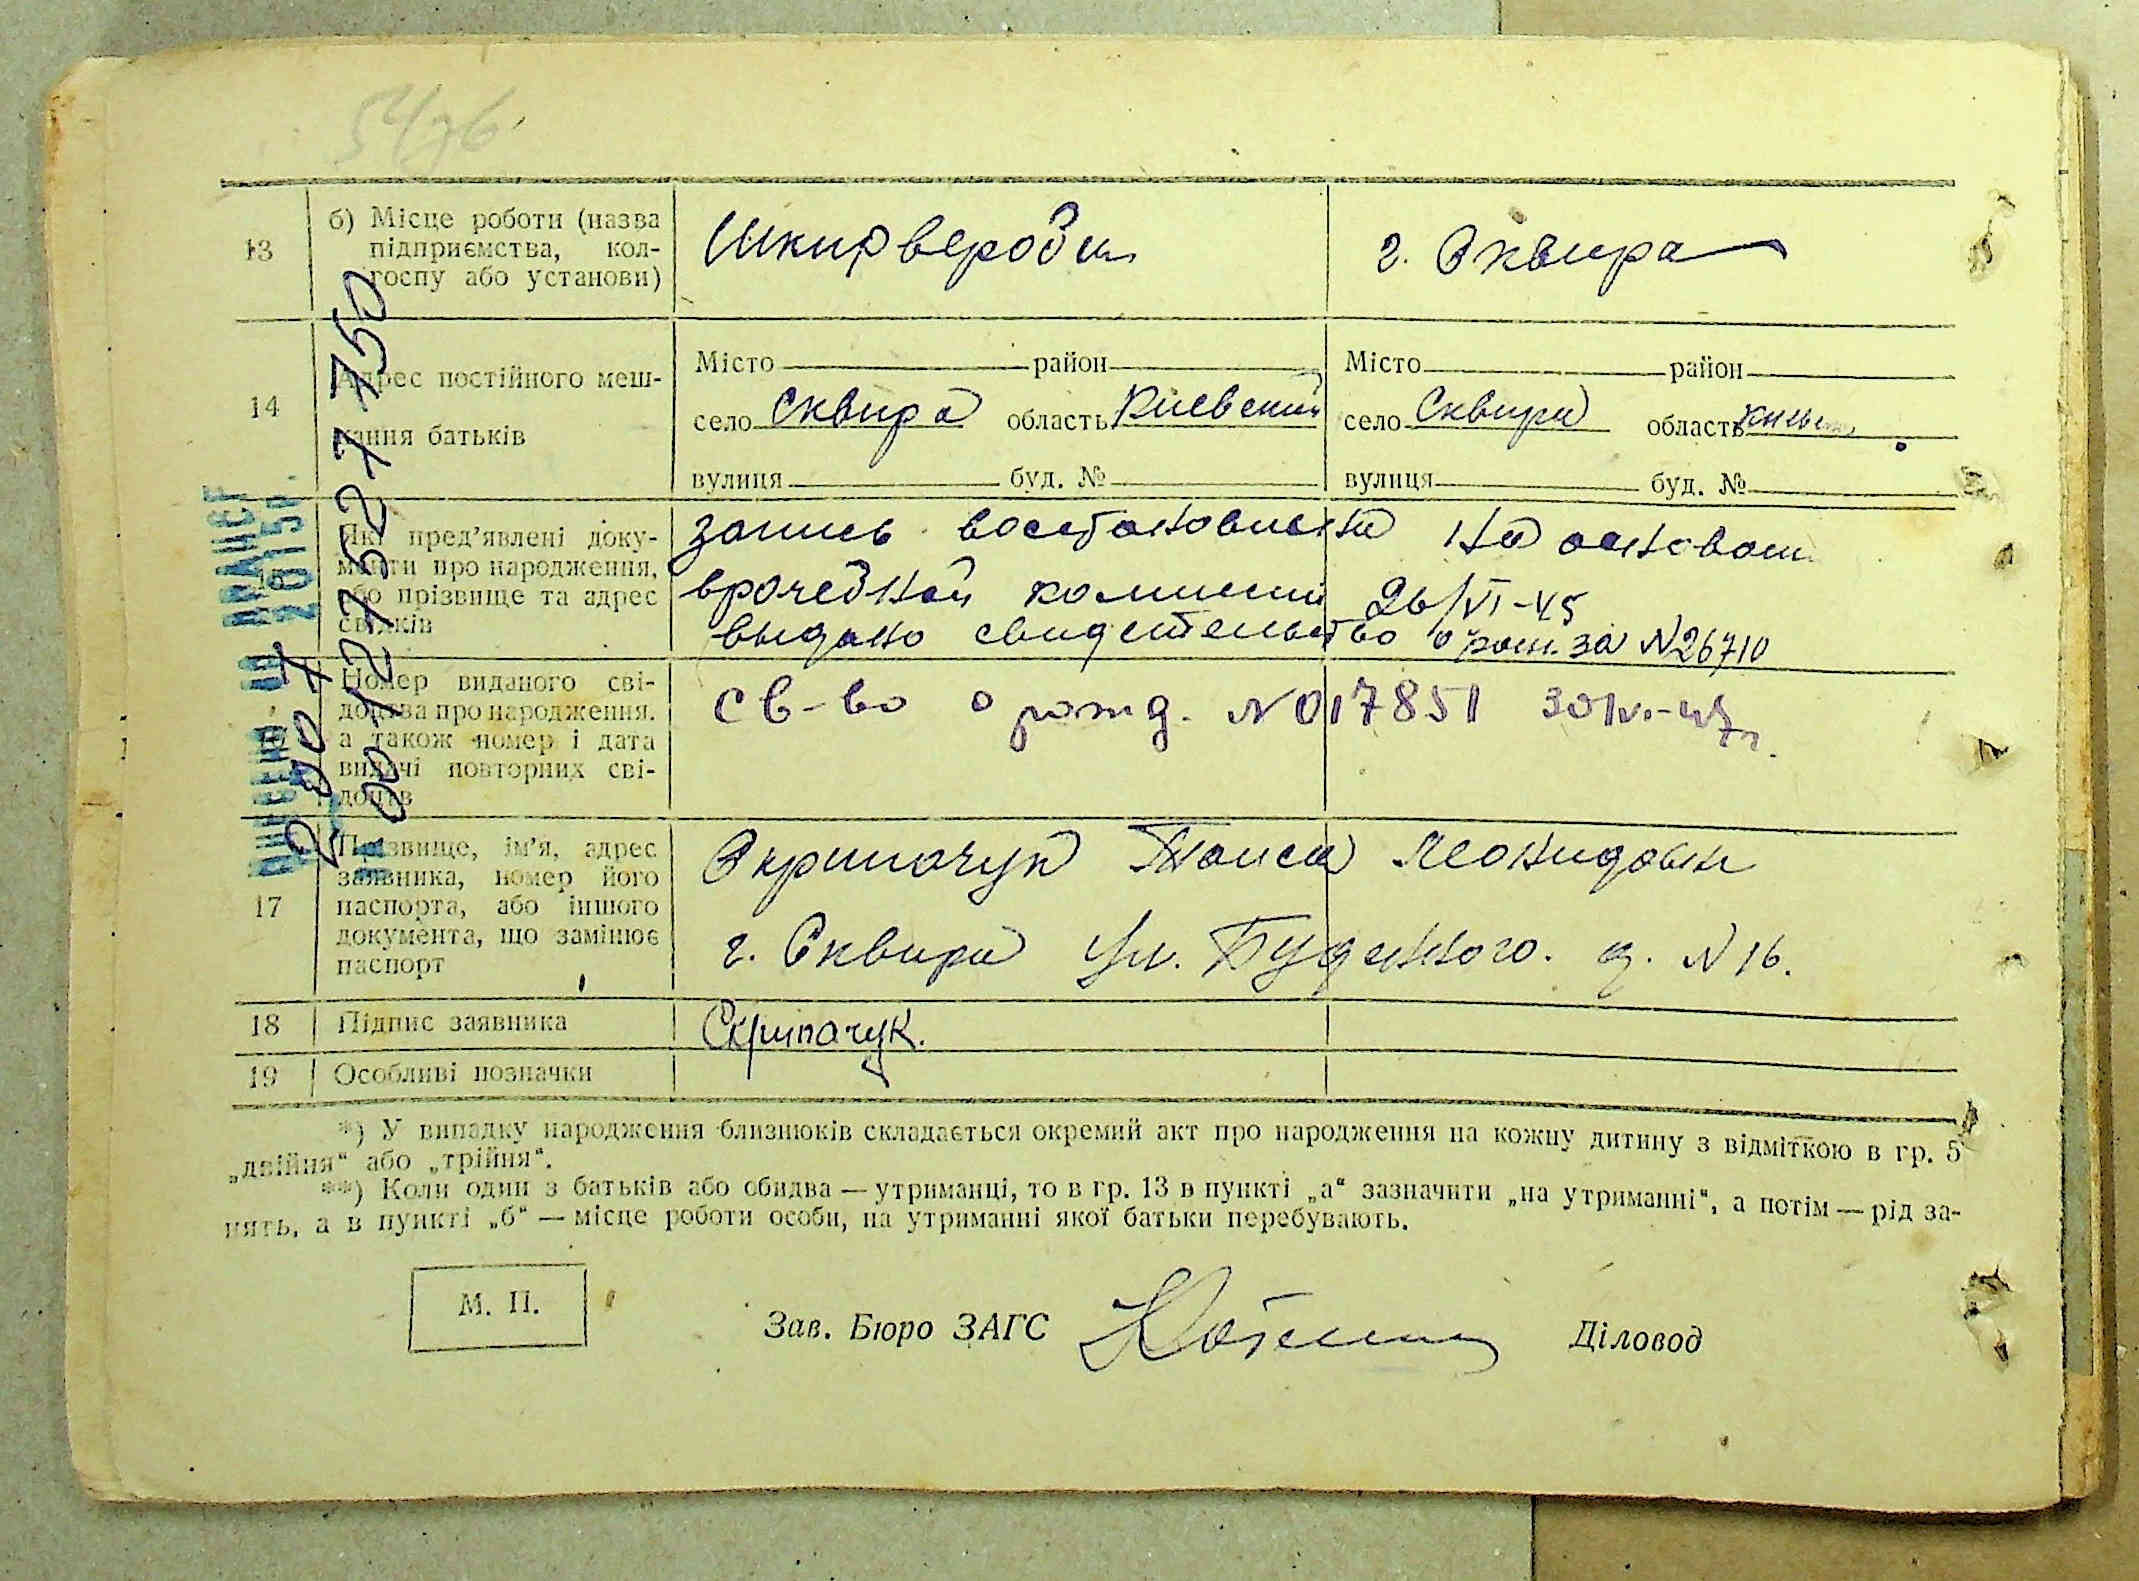 13
б) Місце роботи (назва
підприємства, кол-
госпу або установи)
г. Сквира
14
Адрес постійного меш-
кання батьків
Місто район
село Сквира область Киевский
вулиця буд. №
Місто район
село Сквира область
вулиця буд. №
Які пред’явлені доку-
менти про народження,
або прізвище та адрес
свідків
запись восстановлена на основан.
врачебной комиссии 26/VI-45
выдано свидетельство о рож. за N 26710
Номер виданого сві-
доцтва про народження,
а також номер і дата
видачі повторних сві-
доцтв
св-во о рожд. N 017851
17
Прізвище, ім’я, адрес
заявника, номер його
паспорта, або іншого
документа, що замінює
паспорт
Скрипачук Таиса Леонидовн
г. Сквира ул. Буденного. д. N 16.
18
Підпис заявника
Скрипачук.
19
Особливі позначки
*) У випадку народження близнюків складається окремий акт про народження на кожну дитину з відміткою в гр. 5
„двійня“ або „трійня“.
**) Коли один з батьків або обидва — утриманці, то в гр. 13 в пункті „а“ зазначити „на утриманні“, а потім — рід за-
нять, а в пункті „б“ — місце роботи особи, на утриманні якої батьки перебувають.
М. П.
Зав. Бюро ЗАГС
Діловод
00127527750